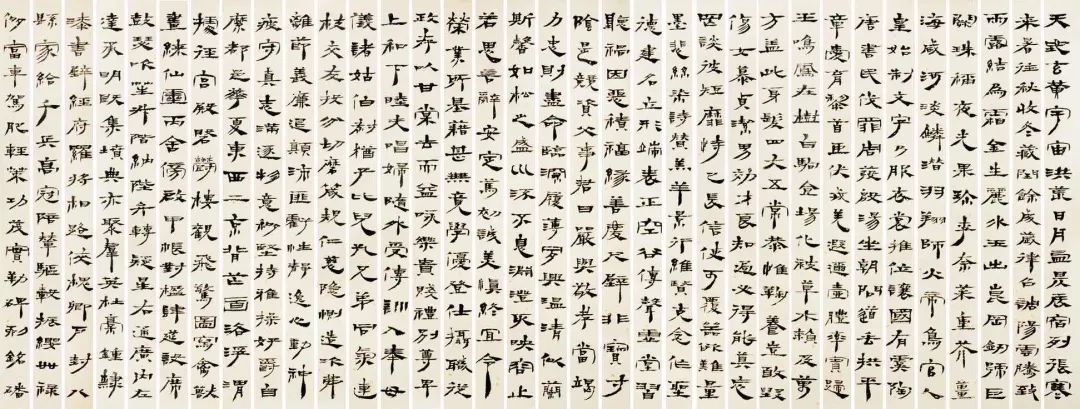 天地玄黄宇宙洪荒日月盈昃辰宿列張寒
来暑往秋收冬藏閏餘成歲律吕調陽雲騰致
雨露結為霜金生麗水玉出崑岡劍號巨
闕珠稱夜光果珍李柰菜重芥薑
海鹹河淡鱗潛羽翔師火帝鳥官人
皇始制文字乃服衣裳推位讓國有虞陶
唐弔民伐罪周發殷湯坐朝問道垂拱平
章愛育黎首臣伏戎羌遐邇壹體率賓歸
王鳴鳳在樹白駒食場化被草木賴及萬
方蓋此身髮四大五常恭惟鞠養豈敢毀
傷女慕貞潔男效才良知過必得能莫忘
罔談彼短靡恃己長信使可覆器欲難量
墨悲絲染詩讚羔羊景行維賢克念作聖
德建名立形端表正空谷傳聲虛堂習
聽禍因惡積福緣善慶尺璧非寶寸
陰是競資父事君曰嚴與敬孝當竭
力忠則盡命臨深履薄夙興溫凊似蘭
斯馨如松之盛川流不息淵澄取映容止
若思言辭安定篤初誠美慎終宜令
榮業所基籍甚無竟學優登仕攝職從
政存以甘棠去而益詠樂貴賤禮別尊卑
上和下睦夫唱婦隨外受傅訓入奉母
儀諸姑伯叔猶子比兒孔兄弟同氣連
枝交友投分切磨箴規仁慈隱惻造次弗
離節義廉退顛沛匪虧性靜逸心動神
疲守真志滿逐物意移堅持雅操好爵自
縻都邑華夏東西二京背芒面洛浮渭
據涇宮殿盤鬱樓觀飛驚圖寫禽獸
畫綵仙靈丙舍傍啟甲帳對楹肆筵設席
鼓瑟吹笙升階納陛弁轉疑星右通廣内左
達承明既集墳典亦聚羣英杜稾鍾隸
漆書壁經府羅將相路俠槐卿戶封八
縣家給千兵高冠陪輦驅轂振纓世祿
侈富車駕肥輕策功茂實勒碑刻銘磻